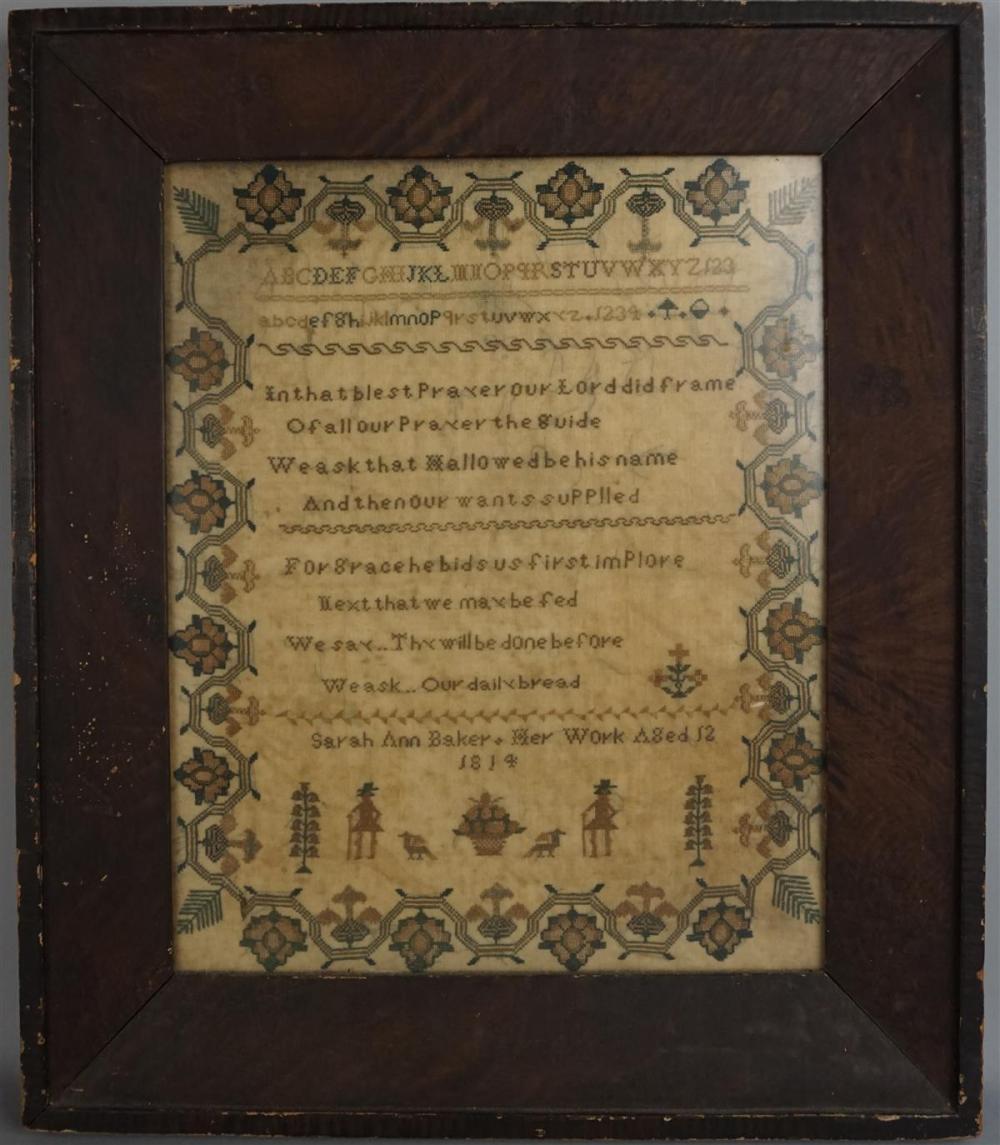 ABCDEFGHIJKLMNOPQRSTUVWXYZ123
abcdefghijklmnopqrstuvwxyz.1234
In that blest Prayer our Lord did frame
Of all our Prayer the guide
We ask that Hallowed be his name
And then our wants supplied
For grace he bids us first implore
Next that we may be fed
We say.. Thy will be done before
We ask... Our daily bread
Sarah Ann Baker. Her Work Aged 12
1814